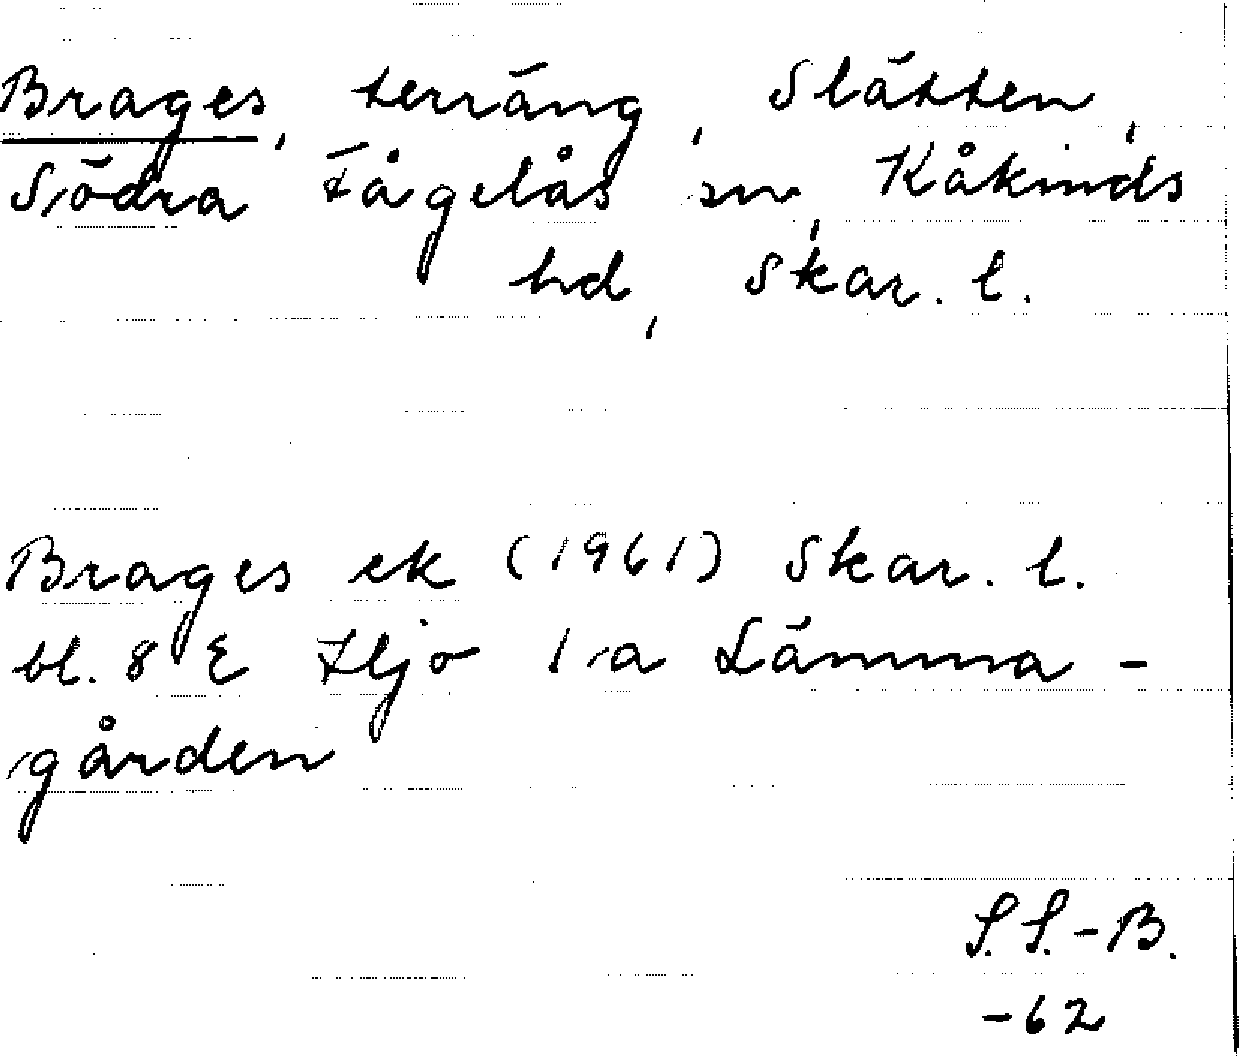 Brages, terräng, Slätten,
Södra Fågelås sn, Kåkinds
hd, Skar. l.
Brages ek (1961) Skar. l.
bl. 8 E Hjo 1 a Lämma-
gården
S.S.-B.
-62